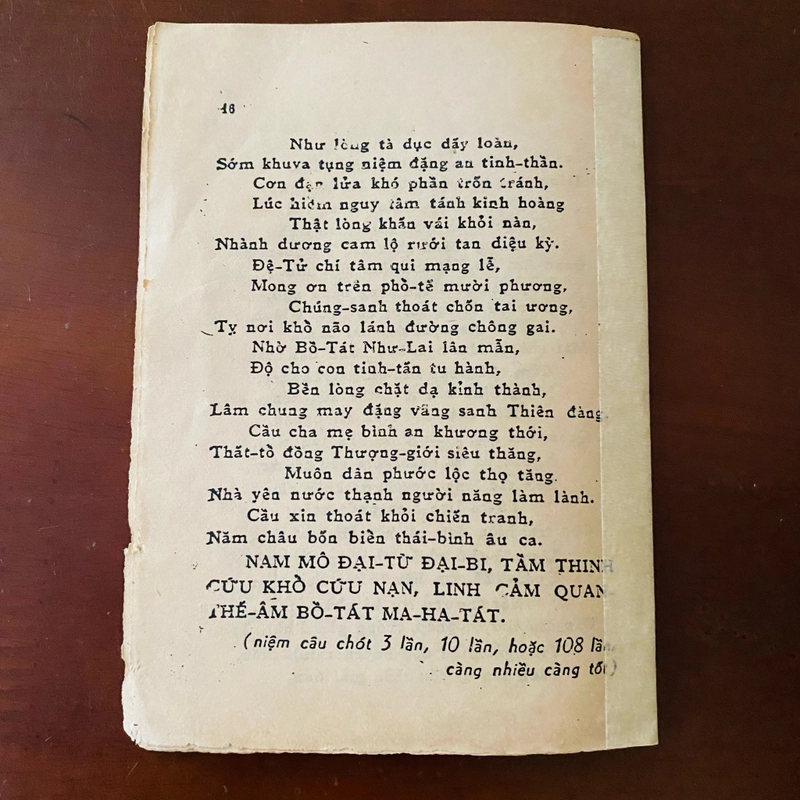 16
Như lòng tà dục dấy loàn,
Sớm khuya tụng niệm đặng an tinh-thần.
Cơn đạn lửa khó phần trốn tránh,
Lúc hiểm nguy tâm tánh kinh hoàng
Thật lòng khấn vái khỏi nàn,
Nhành dương cam lộ rưới tan diệu kỳ.
Đệ-Tử chí tâm qui mạng lễ,
Mong ơn trên phổ-tế mười phương,
Chúng-sanh thoát chốn tai ương,
Tỵ nơi khổ não lánh đường chông gai.
Nhờ Bồ-Tát Như-Lai lân mẫn,
Độ cho con tinh-tấn tu hành,
Bền lòng chặt dạ kỉnh thành,
Lâm chung may đặng vãng sanh Thiên đàng.
Cầu cha mẹ bình an khương thới,
Thất-tổ đồng Thượng-giới siêu thăng,
Muôn dân phước lộc thọ tăng.
Nhà yên nước thạnh người năng làm lành.
Cầu xin thoát khỏi chiến tranh,
Năm châu bốn biển thái-bình âu ca.
NAM MÔ ĐẠI-TỪ ĐẠI-BI, TẦM THINH
CỨU KHỔ CỨU NẠN, LINH CẢM QUAN
THẾ-ÂM BỒ-TÁT MA-HA-TÁT.
(niệm câu chót 3 lần, 10 lần, hoặc 108 lần,
càng nhiều càng tốt)